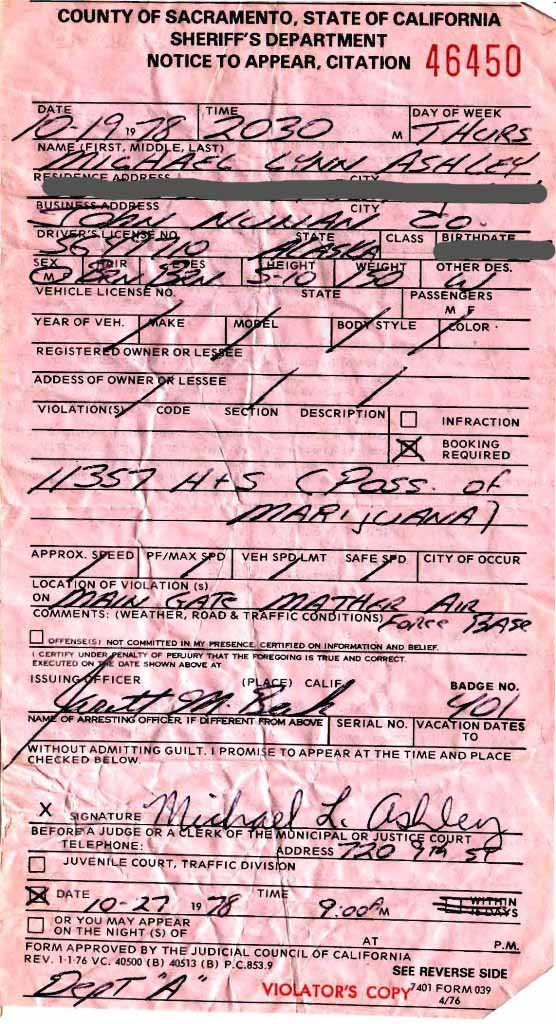 COUNTY OF SACRAMENTO, STATE OF CALIFORNIA
SHERIFF'S DEPARTMENT
NOTICE TO APPEAR, CITATION 46450
DATE TIME DAY OF WEEK
10-19 1978 2030 M THURS
NAME (FIRST, MIDDLE, LAST)
MICHAEL LYNN ASHLEY
RESIDENCE ADDRESS CITY
BUSINESS ADDRESS CITY
JOHN NUNAN CO.
DRIVER'S LICENSE NO. STATE CLASS BIRTHDATE
ALASKA
SEX HAIR EYES HEIGHT WEIGHT OTHER DES.
M BRN BRN 5-10 150 W
VEHICLE LICENSE NO. STATE PASSENGERS
M F
YEAR OF VEH. MAKE MODEL BODY STYLE COLOR
REGISTERED OWNER OR LESSEE
ADDESS OF OWNER OR LESSEE
VIOLATION(S) CODE SECTION DESCRIPTION
INFRACTION
BOOKING
REQUIRED
11357 H+S (POSS. OF
MARIJUANA)
APPROX. SPEED PF/MAX SPD VEH SPD LMT SAFE SPD CITY OF OCCUR
LOCATION OF VIOLATION (s)
ON MAIN GATE MATHER AIR
COMMENTS: (WEATHER, ROAD & TRAFFIC CONDITIONS) FORCE BASE
OFFENSE(S) NOT COMMITTED IN MY PRESENCE, CERTIFIED ON INFORMATION AND BELIEF.
I CERTIFY UNDER PENALTY OF PERJURY THAT THE FOREGOING IS TRUE AND CORRECT.
EXECUTED ON THE DATE SHOWN ABOVE AT
ISSUING OFFICER (PLACE) CALIF. BADGE NO.
401
NAME OF ARRESTING OFFICER. IF DIFFERENT FROM ABOVE SERIAL NO. VACATION DATES
TO
WITHOUT ADMITTING GUILT. I PROMISE TO APPEAR AT THE TIME AND PLACE
CHECKED BELOW.
X SIGNATURE Michael L. Ashley
BEFORE A JUDGE OR A CLERK OF THE MUNICIPAL OR JUSTICE COURT
TELEPHONE: ADDRESS 720 9TH ST
JUVENILE COURT, TRAFFIC DIVISION
DATE TIME WITHIN
10-27 1978 9:00 AM 15 DAYS
OR YOU MAY APPEAR
ON THE NIGHT (S) OF AT P.M.
FORM APPROVED BY THE JUDICIAL COUNCIL OF CALIFORNIA
REV. 1-1-76 VC. 40500 (B) 40513 (B) P.C.853.9
SEE REVERSE SIDE
DEPT "A" VIOLATOR'S COPY 7401 FORM 039
4/76